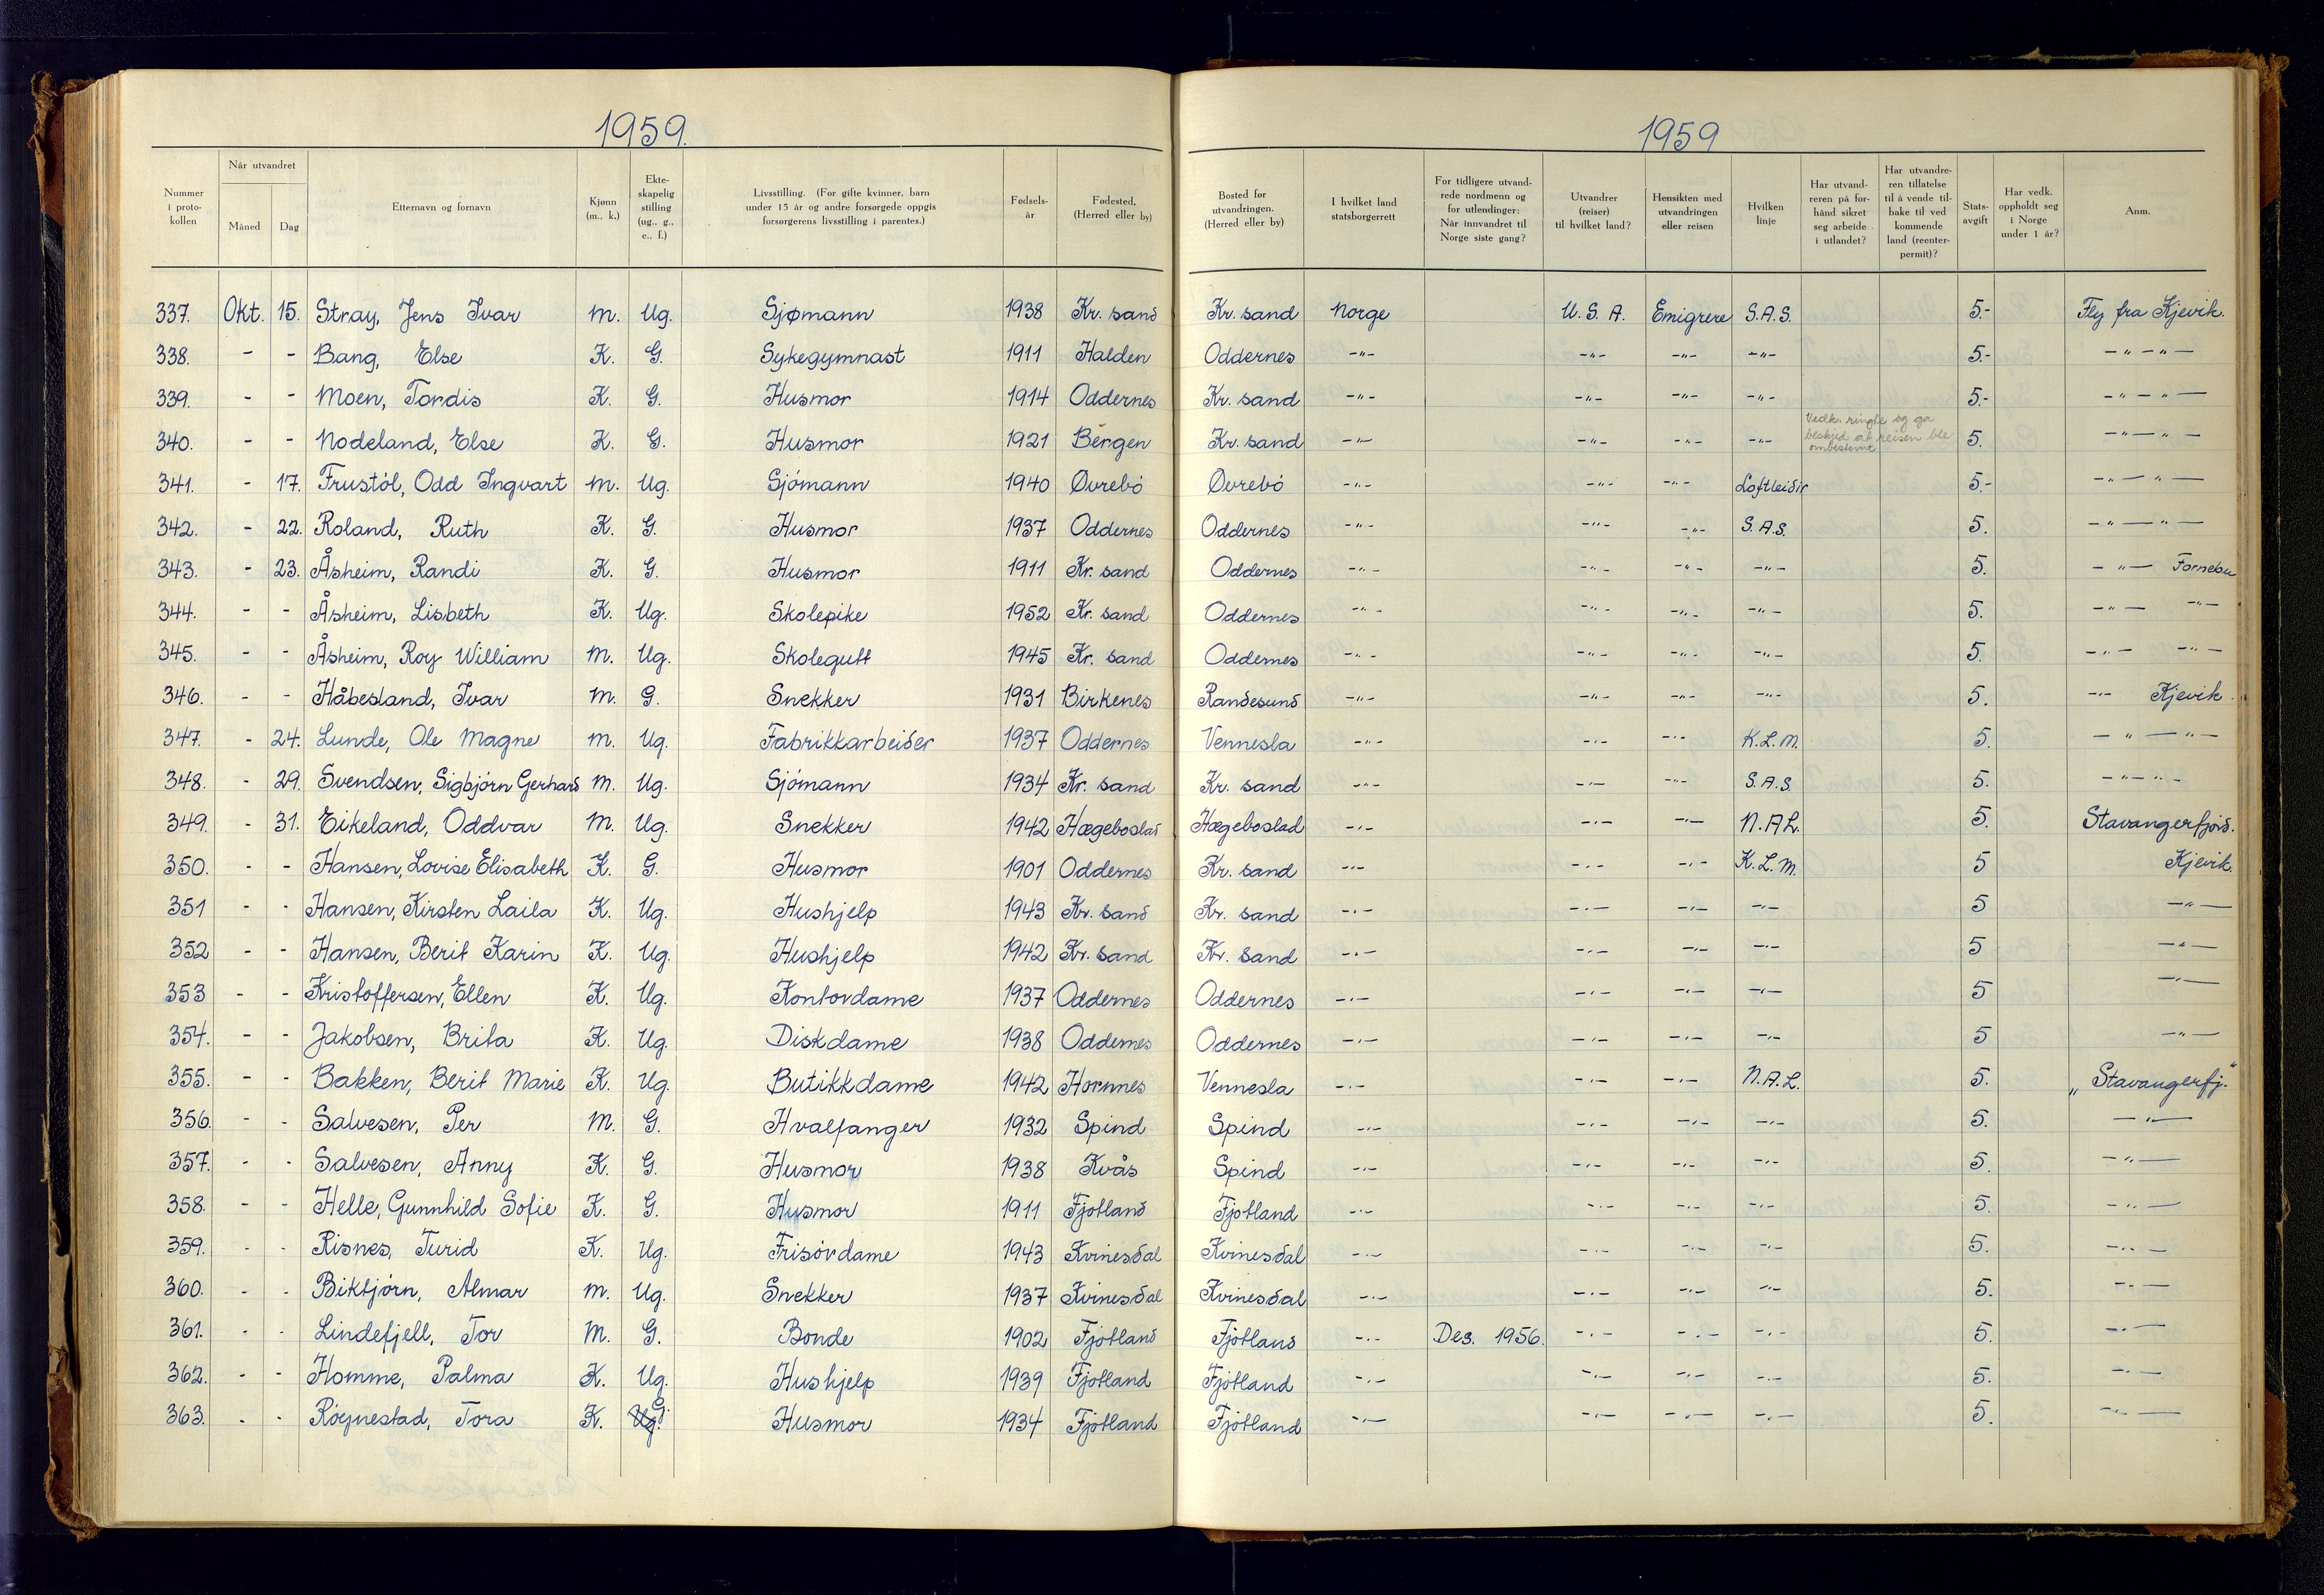 1959.
1959
Nummer i proto-kollen | Når utvandret Måned | Dag | Etternavn og fornavn | Kjønn (m., k.) | Ekte-skapelig stilling (ug., g., e., f.) | Livsstilling. (For gifte kvinner, barn under 15 år og andre forsørgede oppgis forsørgerens livsstilling i parentes.) | Fødsels-år | Fødested. (Herred eller by) | Bosted før utvandringen. (Herred eller by) | I hvilket land statsborgerrett | For tidligere utvand-rede nordmenn og for utlendinger: Når innvandret til Norge siste gang? | Utvandrer (reiser) til hvilket land? | Hensikten med utvandringen eller reisen | Hvilken linje | Har utvand-reren på for-hånd sikret seg arbeide i utlandet? | Har utvandre-ren tillatelse til å vende til-bake til ved kommende land (reenter-permit)? | Stats-avgift | Har vedk. oppholdt seg i Norge under 1 år? | Anm.
337. Okt. 15. Stray, Jens Ivar M. Ug. Sjømann 1938 Kr. sand Kr. sand Norge U.S.A. Emigrere S.A.S. 5.- Fly fra Kjevik.
338. - - Bang, Else K. G. Sykegymnast 1911 Halden Oddernes -"- -"- -"- -"- 5.- -"-"-
339. - - Moen, Tordis K. G. Husmor 1914 Oddernes Kr. sand -"- -"- -"- -"- 5.- -"-"-
340. - - Nodeland, Else K. G. Husmor 1921 Bergen Kr. sand -"- -"- -"- -"- Vedk. ringte og ga beskjed at reisen ble ombestemt 5. -"-"-
341. - 17. Frustöl, Odd Ingvart M. Ug. Sjömann 1940 Øvrebö Øvrebö -"- -"- -"- Loftleidir 5.- -"-"-
342. - 22. Roland, Ruth K. G. Husmor 1937 Oddernes Oddernes -"- -"- -"- S.A.S. 5. -"-"-
343. - 23. Åsheim, Randi K. G. Husmor 1911 Kr. sand Oddernes -"- -"- -"- -"- 5. -"- Fornebu
344. - - Åsheim, Lisbeth K. Ug. Skolepike 1952 Kr. sand Oddernes -"- -"- -"- -"- 5. -"- -"-
345. - - Åsheim, Roy William M. Ug. Skolegutt 1945 Kr. sand Oddernes -"- -"- -"- -"- 5. -"- -"-
346. - - Håbesland, Ivar M. G. Snekker 1931 Birkenes Randesund -"- -"- -"- -"- 5. -"- Kjevik.
347. - 24. Lunde, Ole Magne M. Ug. Fabrikkarbeider 1937 Oddernes Vennesla -"- -"- -"- K.L.M. 5. -"-"-
348. - 29. Svendsen, Sigbjörn Gerhard M. Ug. Sjömann 1934 Kr. sand Kr. sand -"- -"- -"- S.A.S. 5. -"-"-
349. - 31. Eikeland, Oddvar M. Ug. Snekker 1942 Hægebostad Hægebostad -"- -"- -"- N.A.L. 5. Stavangerfjord.
350. - - Hansen, Lovise Elisabeth K. G. Husmor 1901 Oddernes Kr. sand -"- -"- -"- K.L.M. 5 Kjevik.
351 - - Hansen, Kirsten Laila K. Ug. Hushjelp 1943 Kr. sand Kr. sand -"- -"- -"- -"- 5 -"-
352 - - Hansen, Berit Karin K. Ug. Hushjelp 1942 Kr. sand Kr. sand -"- -"- -"- -"- 5 -"-
353 - - Kristoffersen, Ellen K. Ug. Kontordame 1937 Oddernes Oddernes -"- -"- -"- -"- 5 -"-
354. - - Jakobsen, Brita K. Ug. Diskdame 1938 Oddernes Oddernes -"- -"- -"- -"- 5 -"-
355. - - Bakken, Berit Marie K. Ug. Butikkdame 1942 Hornnes Vennesla -"- -"- -"- N.A.L. 5. „Stavangerfj."
356. - - Salvesen, Per M. G. Hvalfanger 1932 Spind Spind -"- -"- -"- -"- 5. -"-
357. - - Salvesen, Anny K. G. Husmor 1938 Kvås Spind -"- -"- -"- -"- 5. -"-
358. - - Helle, Gunnhild Sofie K. G. Husmor 1911 Fjotland Fjotland -"- -"- -"- -"- 5. -"-
359. - - Risnes, Turid K. Ug. Frisördame 1943 Kvinesdal Kvinesdal -"- -"- -"- -"- 5. -"-
360. - - Biktjörn, Almar M. Ug. Snekker 1937 Kvinesdal Kvinesdal -"- -"- -"- -"- 5. -"-
361. - - Lindefjell, Tor M. G. Bonde 1902 Fjotland Fjotland -"- Des. 1956. -"- -"- -"- 5. -"-
362. - - Homme, Palma K. Ug. Hushjelp 1939 Fjotland Fjotland -"- -"- -"- -"- 5. -"-
363. - - Röynestad, Tora K. Ug. G. Husmor 1934 Fjotland Fjotland -"- -"- -"- -"- 5. -"-